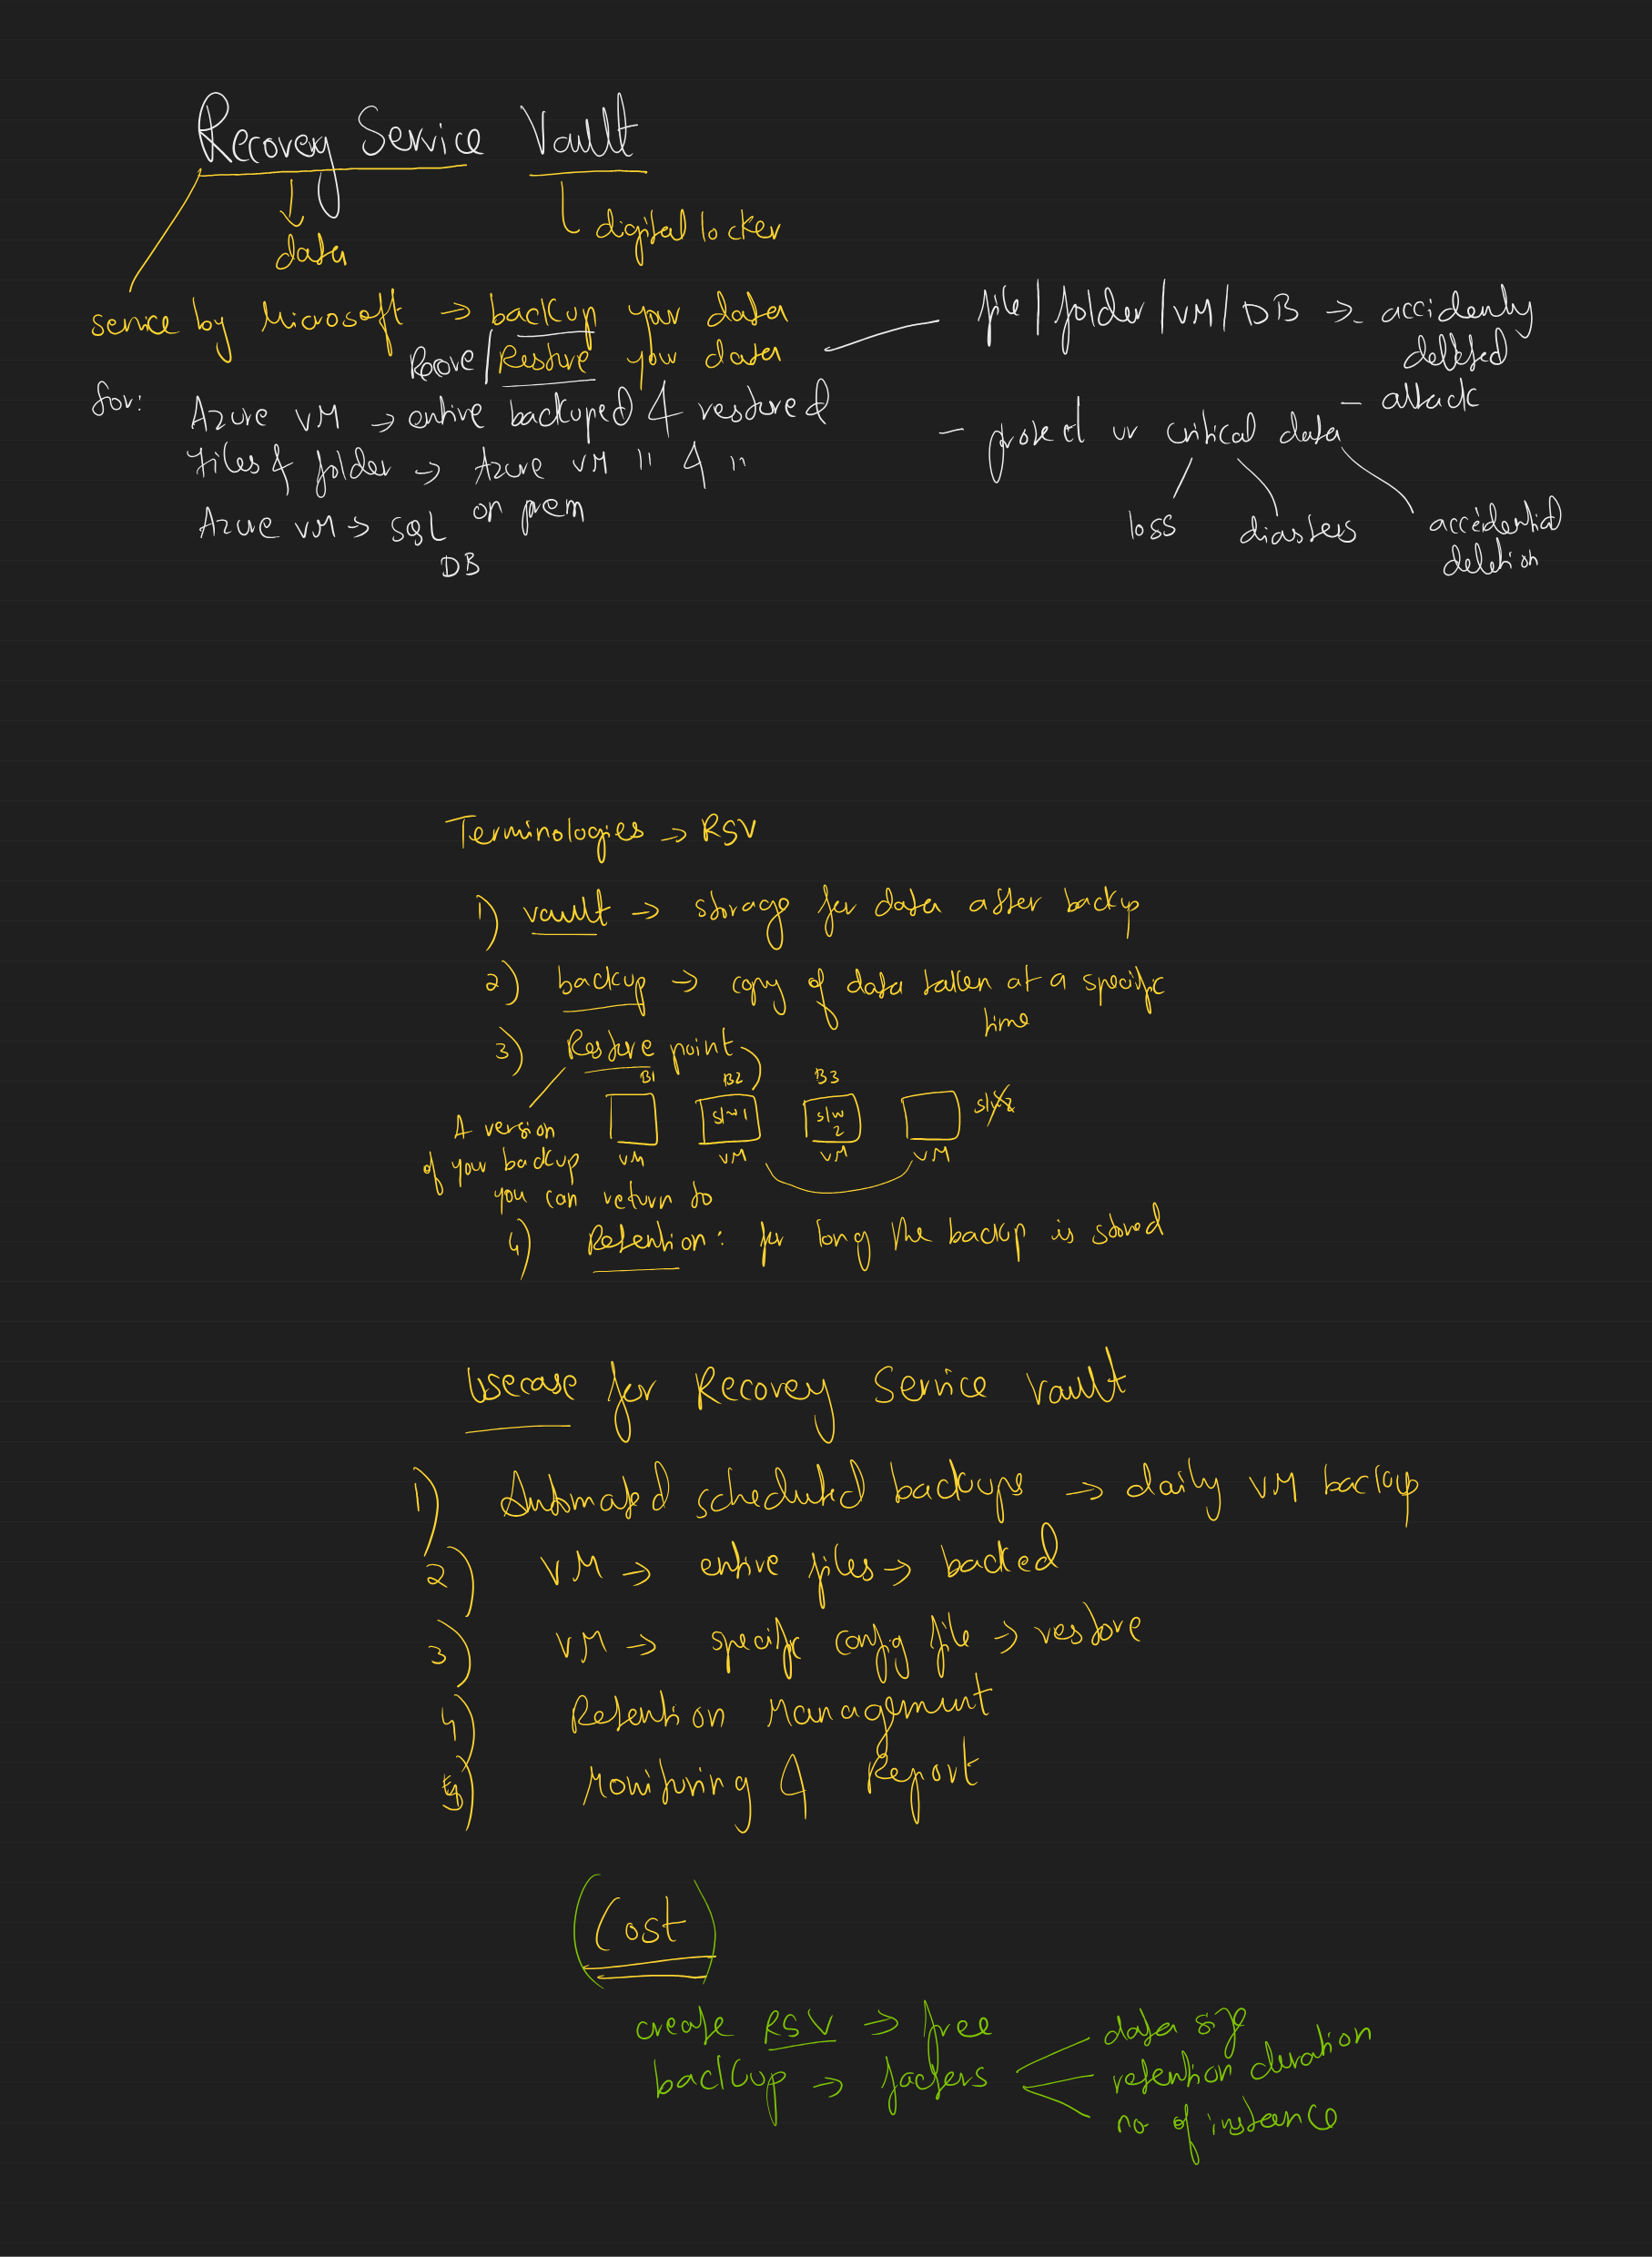 Recovery Service Vault
data
digital locker
service by Microsoft → backup your data
Recove / Restore your data
for:
Azure VM → entire backuped & restored
Files & folder → Azure VM " & "
on prem
Azure VM → SQL
DB
file / folder / VM / DB → - accidenly
deleted
- attack
- protect ur critical data
loss
diasters
accidential
deletion
Terminologies → RSV
1) vault → storage for data after backup
2) backup → copy of data taken at a specific
time
3) Restore point
B1 B2 B3
s/w 1 s/w 2 s/w 2
VM VM VM VM
A version
of your backup
you can return to
4) Retention: for long the backup is stored
Usecase for Recovey Service Vault
1) Automated scheduled backups → daily VM backup
2) VM → entire files → backed
3) VM → specific config file → restore
4) Retention Managment
5) Monitoring & Report
(Cost)
create RSV → free
backup → factors
data size
retention duration
no of instance